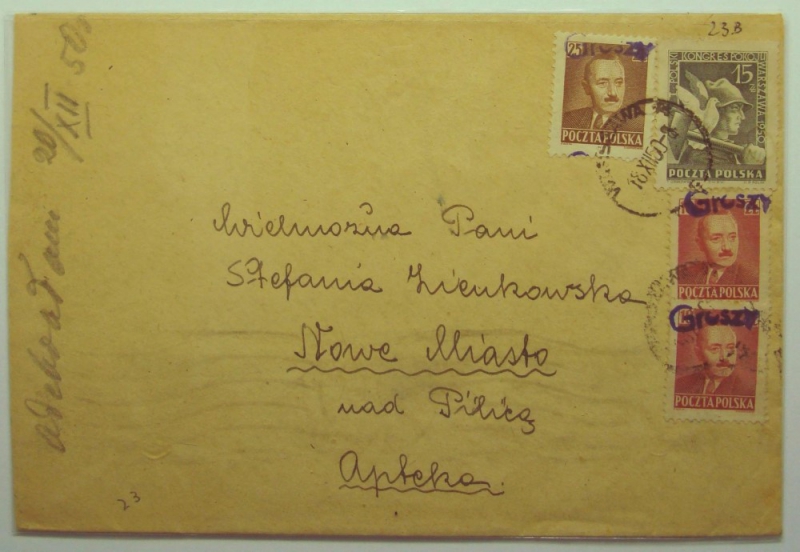 23B
25 Groszy
POCZTA POLSKA
POLSKI KONGRES POKOJU WARSZAWA 1950
15
POCZTA POLSKA
WARSZAWA
18XII50-8
Groszy
POCZTA POLSKA
Groszy
POCZTA POLSKA
Wielmożna Pani
Stefania Zienkowska
Nowe Miasto
nad Pilicą
Apteka
odebrałam 20/XII 50
23